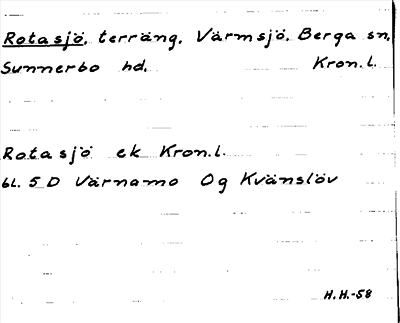 Rotasjö, terräng, Värmsjö, Berga sn,
Sunnerbo hd. Kron.l.
Rotasjö ek Kron.l.
bl. 5 D Värnamo Og Kvänslöv
H.H.-58